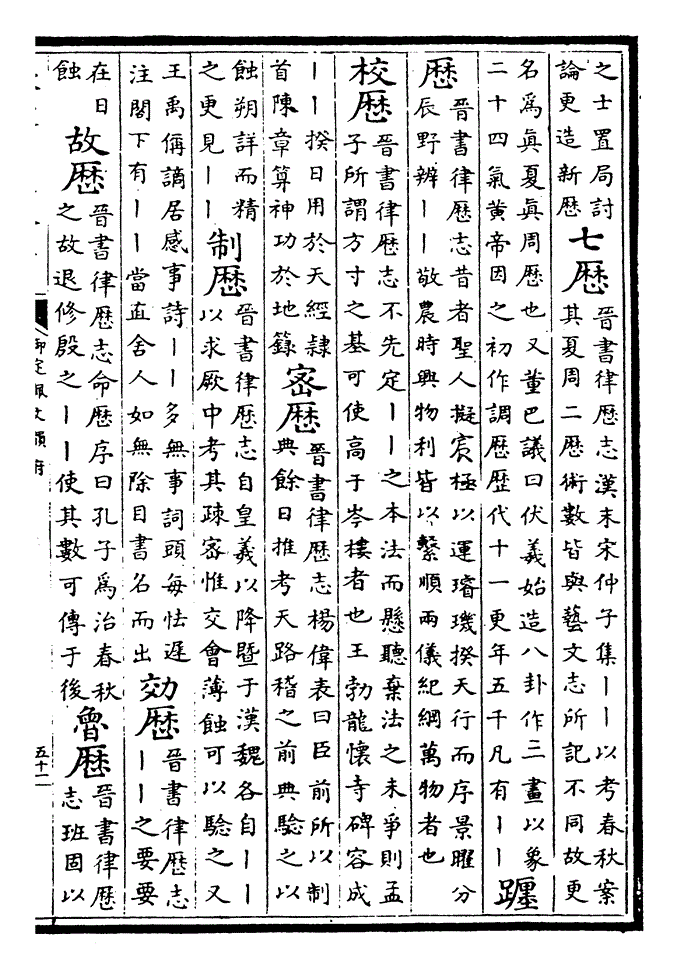 之士置局討
論更造新歴
七歴
晉書律歴志漢末宋仲子集丨丨以考春秋案
其夏周二歴術數皆與藝文志所記不同故更
名為真夏真周歴也又董巴議曰伏羲始造八卦作三畫以象
二十四氣黄帝因之初作調歴歴代十一更年五千凡有丨丨
躔
歴
晉書律歴志昔者聖人擬宸極以運璿璣揆天行而序景曜分
辰野辨丨丨敬農時興物利皆以繫順兩儀紀綱萬物者也
校歴
晉書律歴志不先定丨丨之本法而懸聽棄法之末爭則孟
子所謂方寸之基可使高于岑樓者也王勃龍懷寺碑容成
丨丨揆日用於天經隷
首陳章算神功於地籙
宻歴
晉書律歴志楊偉表曰臣前所以制
典餘日推考天路稽之前典驗之以
蝕朔詳而精
之更見丨丨
制歴
晉書律歴志自皇羲以降暨于漢魏各自丨丨
以求厥中考其疎宻惟交會薄蝕可以驗之又
王禹偁謫居感事詩丨丨多無事詞頭每怯遲
注閣下有丨丨當直舍人如無除目書名而出
効歴
晉書律歴志
丨丨之要要
在日
蝕
故歴
晉書律歴志命歴序曰孔子為治春秋
之故退修殷之丨丨使其數可傳于後
魯歴
晉書律歴
志班固以
御定佩文韻府
五十二